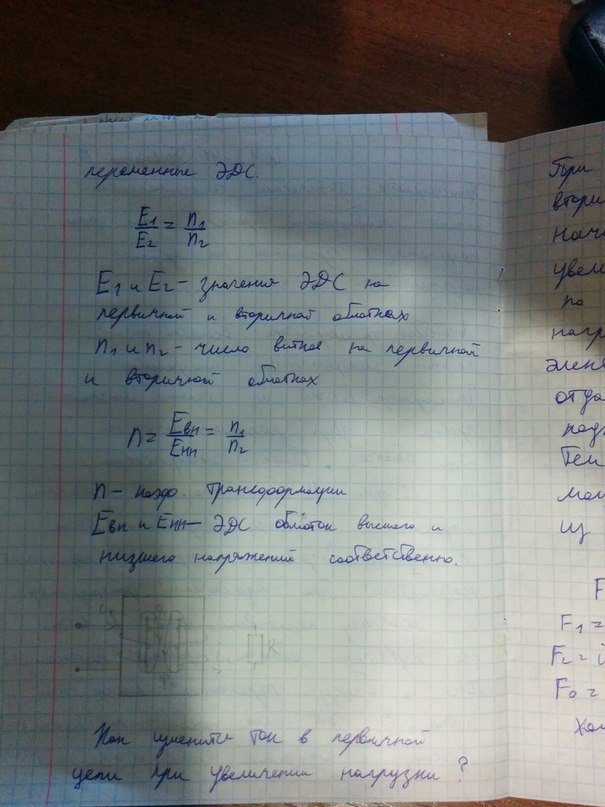 переменные ЭДС.
E1/E2 = n1/n2
E1 и E2 - значения ЭДС на
первичной и вторичной обмотках
n1 и n2 - число витков на первичной
и вторичной обмотках
n = Eвн/Eнн = n1/n2
n - коэф. трансформации
Eвн и Eнн - ЭДС обмоток высшего и
низшего напряжений соответственно.
Как изменится ток в первичной
цепи при увеличении нагрузки?
При
втори
нача
увели
по
нагр
элект
отда
под
Тем
из
F
F1 =
F2 = i
F0 =